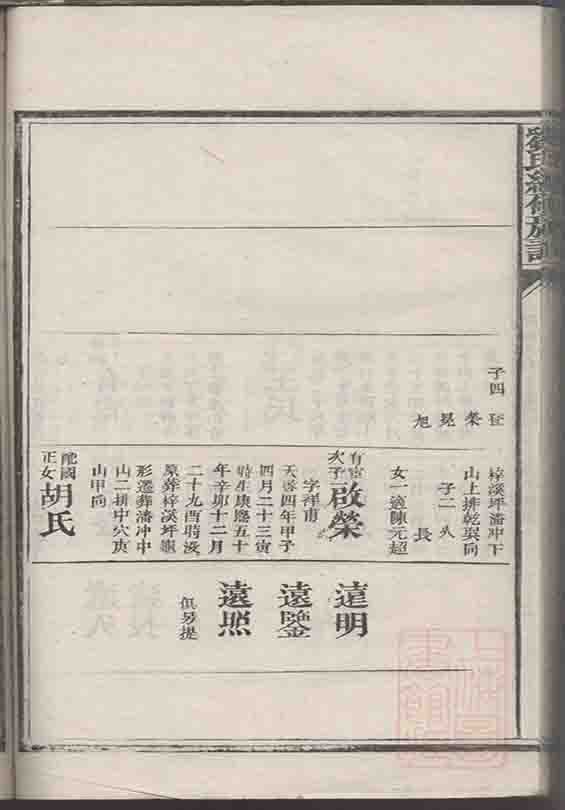 氏續修族譜
子四
榮
晃
旭
梓溪坪潘冲下
山上排乾巽向
子二 久
長
女一適陳元超
次子
啟榮
字祥甫
天啓四年甲子
四月二十三寅
時生康熙五十
年辛卯十二月
二十九酉時没
葬梓溪坪
形遷葬潘冲中
山二排中穴庚
山甲向
配國
正女
胡氏
遠明
遠鑒
遠照
俱另提
上海圖書館藏